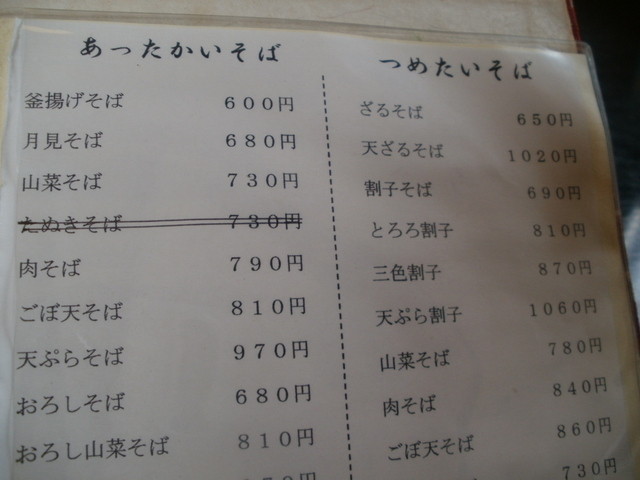 あったかいそば
釜揚げそば 600円
月見そば 680円
山菜そば 730円
たぬきそば 730円
肉そば 790円
ごぼ天そば 810円
天ぷらそば 970円
おろしそば 680円
おろし山菜そば 810円
つめたいそば
ざるそば 650円
天ざるそば 1020円
割子そば 690円
とろろ割子 810円
三色割子 870円
天ぷら割子 1060円
山菜そば 780円
肉そば 840円
ごぼ天そば 860円
730円